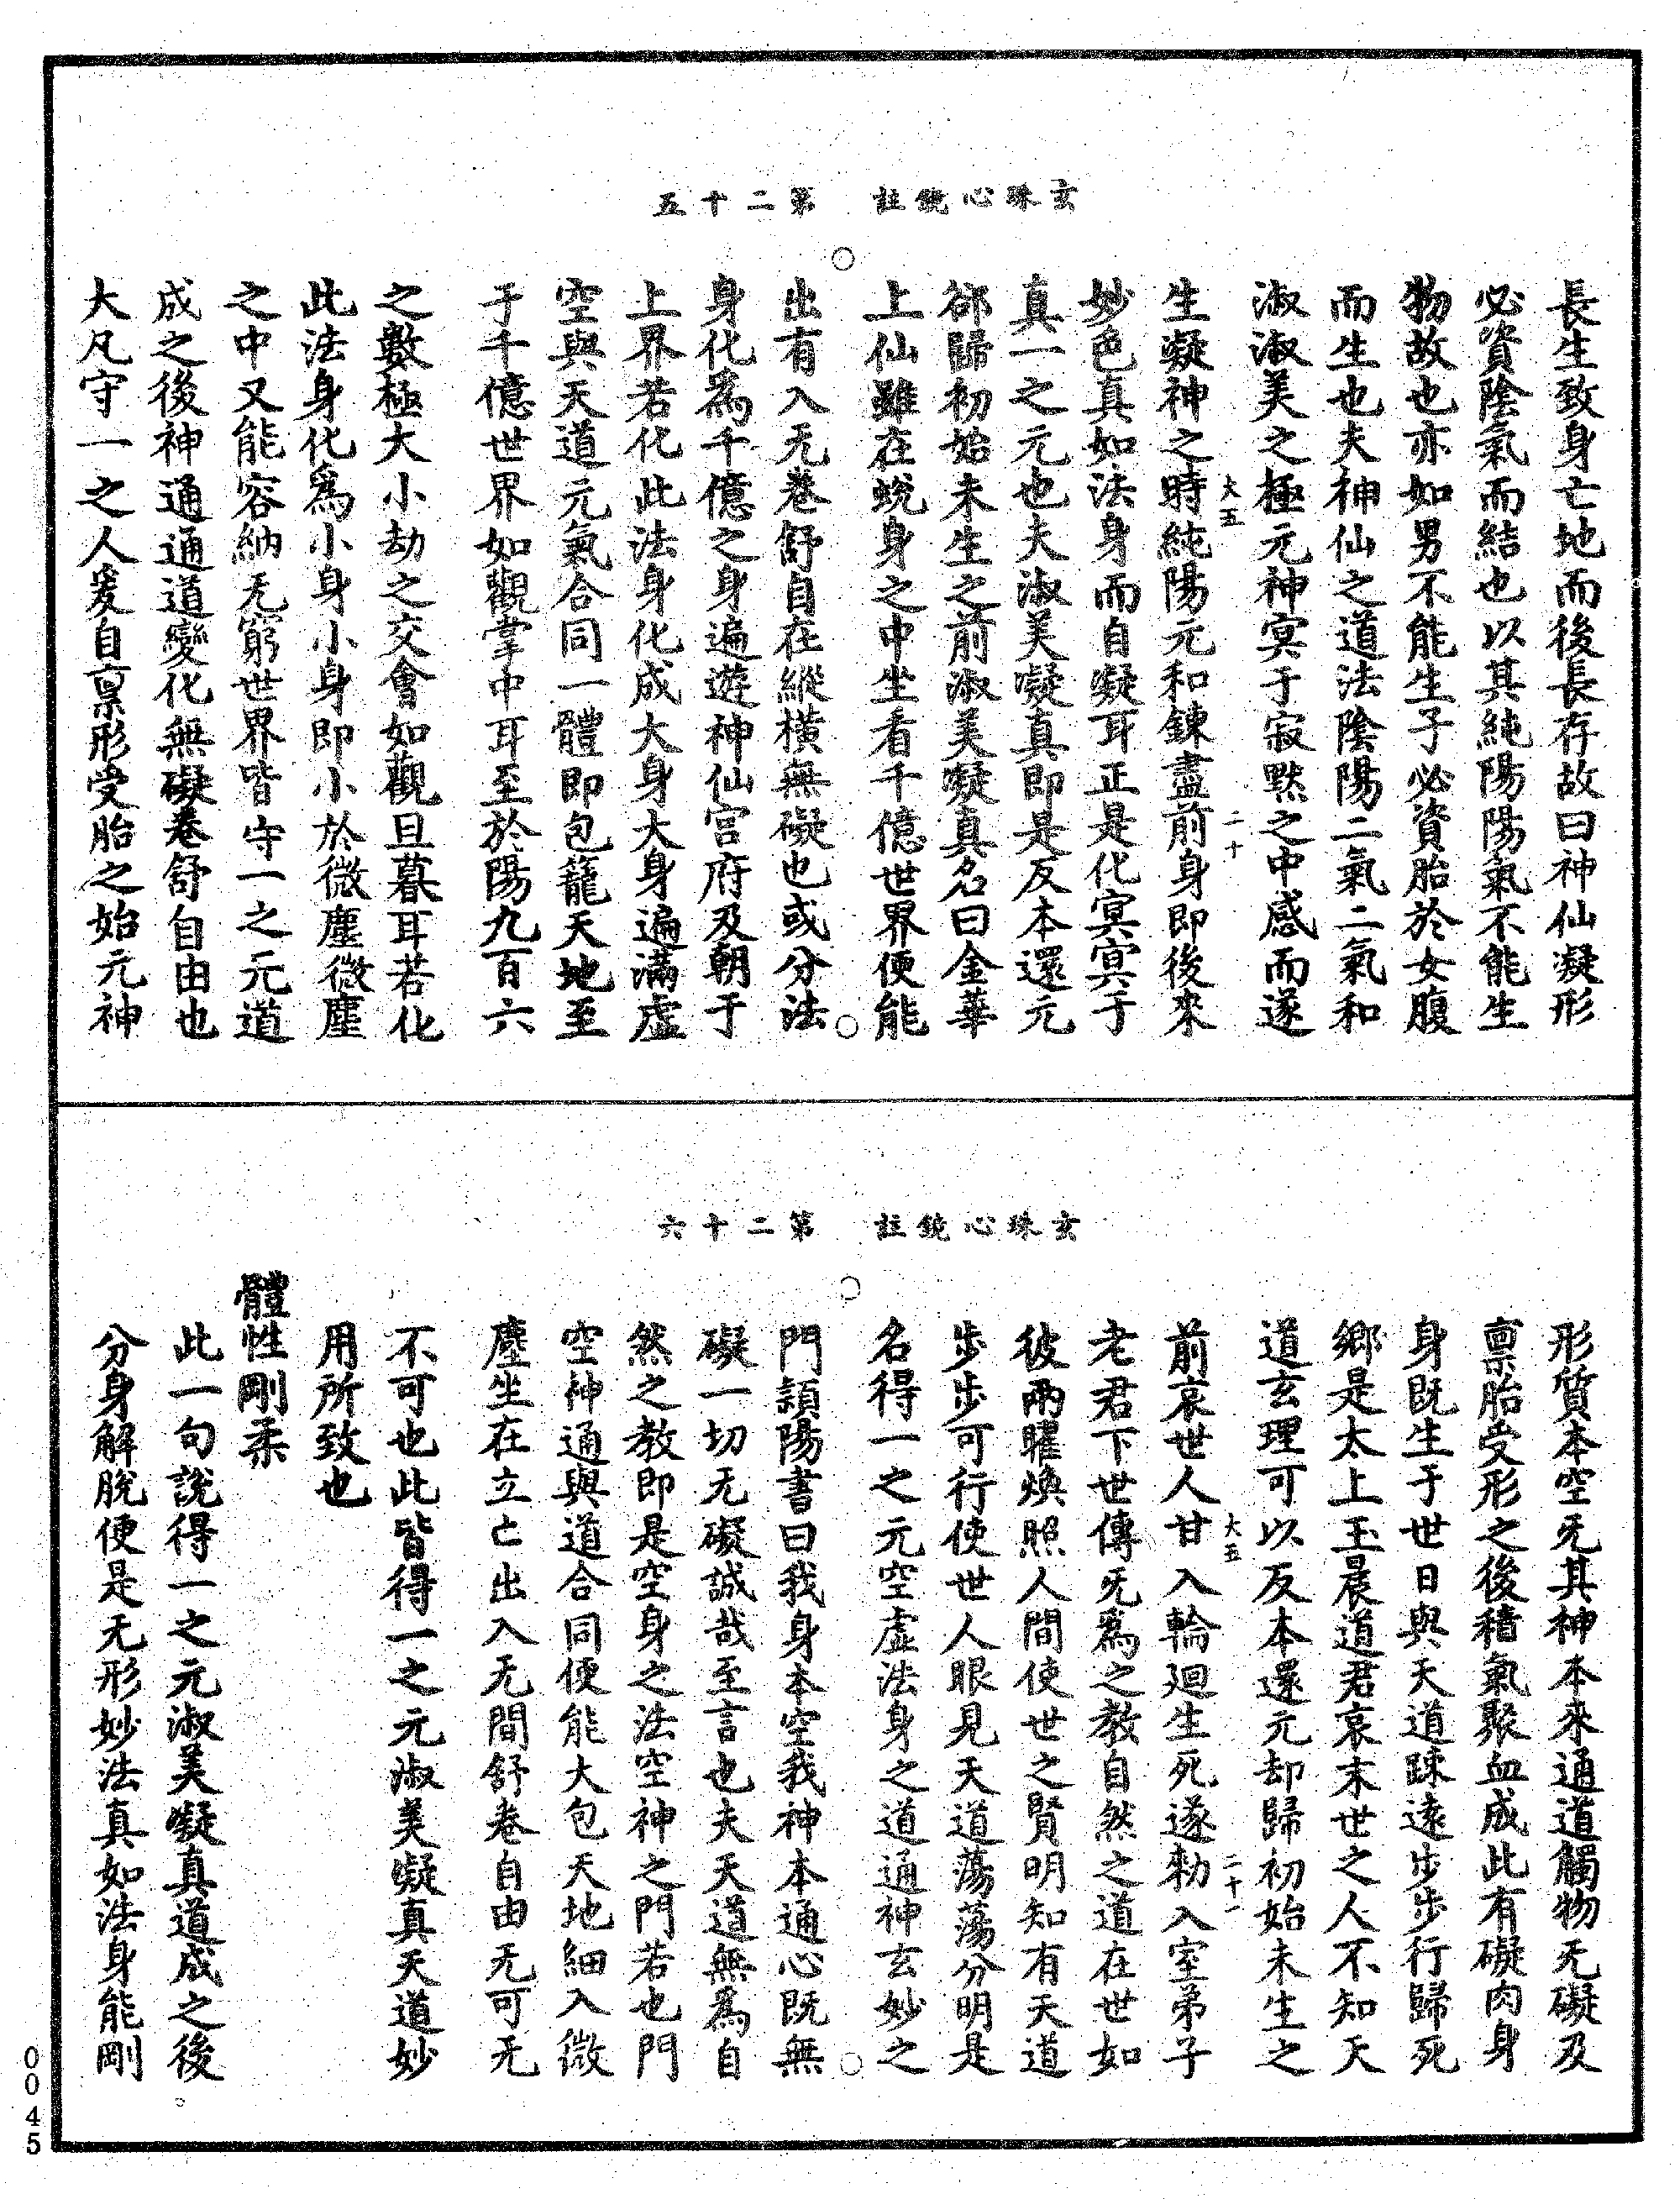 玄珠心鏡註　第二十五
長生致身亡地而後長存故曰神仙凝形
必資陰氣而結也以其純陽陽氣不能生
物故也亦如男不能生子必資胎於女腹
而生也夫神仙之道法陰陽二氣二氣和
淑淑美之極元神冥于寂黙之中感而遂
大五　二十
生凝神之時純陽元和鍊盡前身即後來
妙色真如法身而自凝耳正是化冥冥于
真一之元也夫淑美凝真即是反本還元
郤歸初始未生之前淑美凝真名曰金華
上仙雖在蛻身之中坐看千億世界便能
出有入无卷舒自在縱橫無礙也或分法
身化為千億之身遍遊神仙宮府及朝于
上界若化此法身化成大身大身遍滿虛
空與天道元氣合同一體即包籠天地至
于千億世界如觀掌中耳至於陽九百六
之數極大小劫之交會如觀旦暮耳若化
此法身化為小身小身即小於微塵微塵
之中又能容納无窮世界皆守一之元道
成之後神通通道變化無礙卷舒自由也
大凡守一之人爰自稟形受胎之始元神
玄珠心鏡註　第二十六
形質本空旡其神本來通道觸物无礙及
稟胎受形之後積氣聚血成此有礙肉身
身既生于世日與天道踈遠步步行歸死
鄉是太上玉晨道君哀末世之人不知天
道玄理可以反本還元却歸初始未生之
大五　二十一
前哀世人甘入輪廻生死遂勑入室弟子
老君下世傳旡為之教自然之道在世如
彼兩曜煥照人間使世之賢明知有天道
步步可行使世人眼見天道蕩蕩分明是
名得一之元空虛法身之道通神玄妙之
門頴陽書曰我身本空我神本通心既無
礙一切无礙誠哉至言也夫天道無為自
然之教即是空身之法空神之門若也門
空神通與道合同便能大包天地細入微
塵坐在立亡出入无間舒卷自由无可无
不可也此皆得一之元淑美凝真天道妙
用所致也
體性剛柔
此一句說得一之元淑美凝真道成之後
分身解脫便是无形妙法真如法身能剛
0045